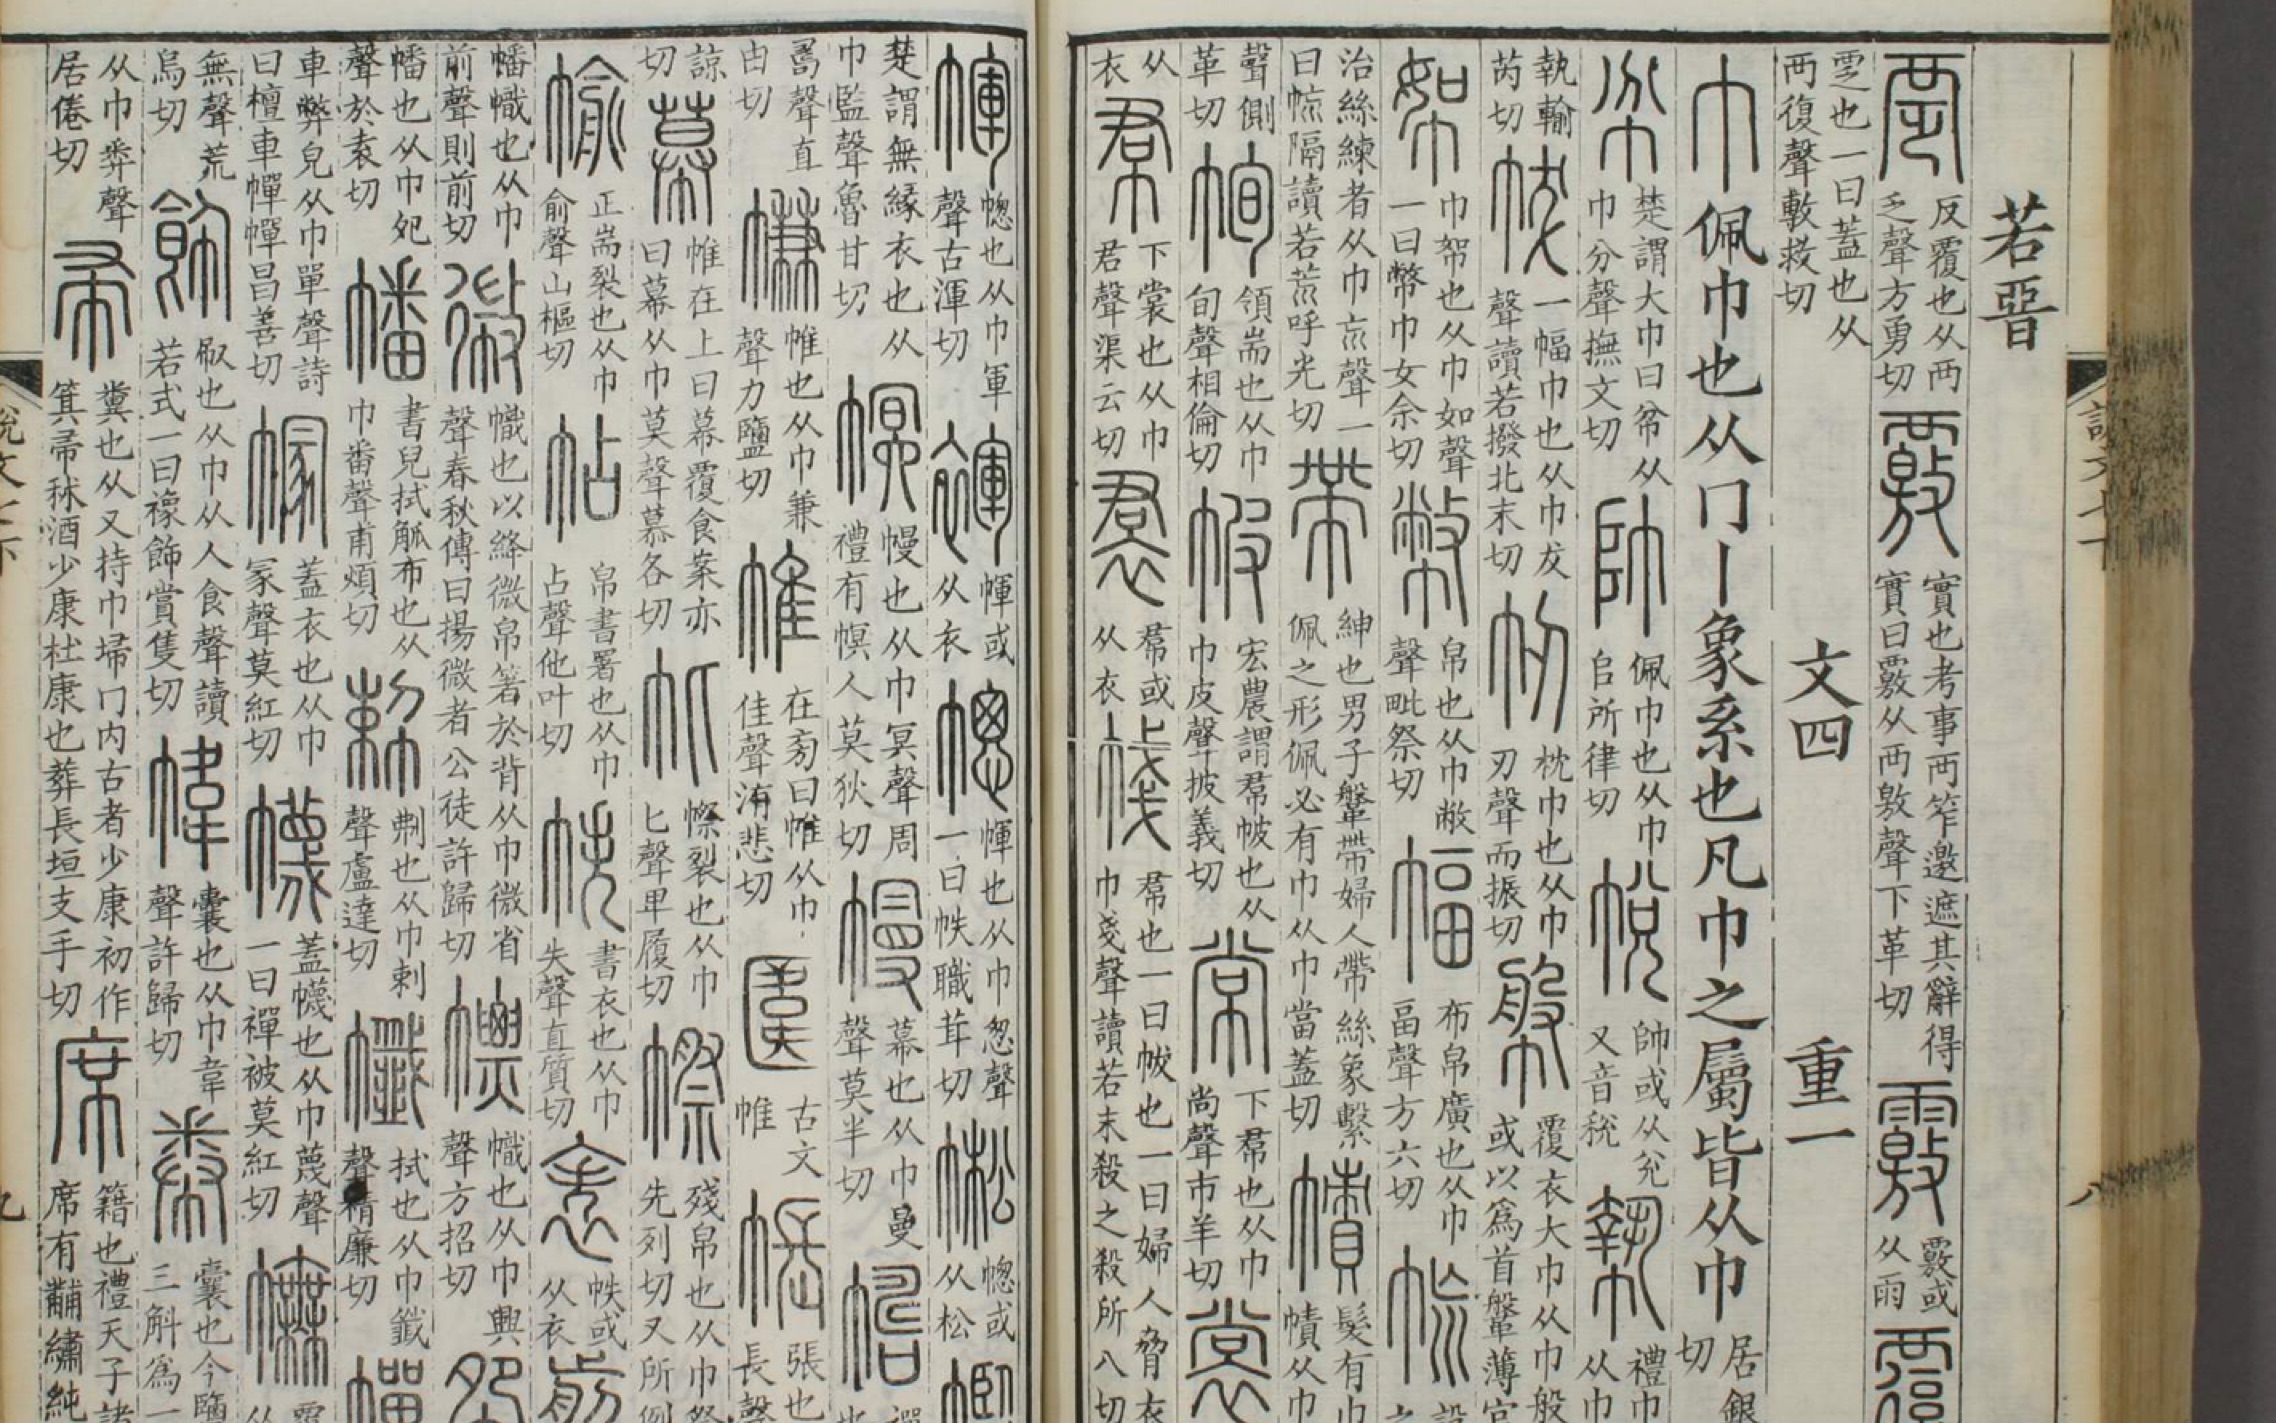 若晋
覂 反覆也从襾
乏聲方勇切
覈 實也考事襾笮邀遮其辭得
實曰覈从襾敫聲下革切
䨣 覈或
从雨
覆
覂也一曰蓋也从
襾復聲敷救切
文四 重一
巾 佩巾也从冂丨象系也凡巾之屬皆从巾 居銀
切
帉 楚謂大巾曰帉从
巾分聲撫文切
帥 佩巾也从巾
𠂤所律切
帨 帥或从兊
又音稅
㡇 禮巾
从巾
執輸
芮切
帗 一幅巾也从巾犮
聲讀若撥北末切
㠴 枕巾也从巾
刃聲而振切
幋 覆衣大巾从巾般
或以爲首鞶薄官
帤 巾帤也从巾如聲
一曰幣巾女余切
幣 帛也从巾敝
聲毗祭切
幅 布帛廣也从巾
畐聲方六切
㡆 設
之
治絲練者从巾㠩聲一
曰㡆隔讀若荒呼光切
帶 紳也男子鞶帶婦人帶絲象繫
佩之形佩必有巾从巾當蓋切
幘 髮有巾
幘从巾
聲側
革切
㡒 領耑也从巾
旬聲相倫切
帔 宏農謂帬帔也从
巾皮聲披義切
常 下帬也从巾
尚聲市羊切
裳
从
衣
帬 下裳也从巾
君聲渠云切
裠 帬或
从衣
㡐 帬也一曰帗也一曰婦人脅衣
巾戔聲讀若末殺之殺所八切
㡓 幒也从巾軍
聲古渾切
褌 㡓或
从衣
幒 㡓也从巾怱聲
一曰帙職茸切
㡆 幒或
从松
楚謂無緣衣也从
巾監聲魯甘切
幎 幔也从巾冥聲周
禮有幎人莫狄切
幔 幕也从巾曼
聲莫半切
𢃄聲直
由切
㡘 帷也从巾兼
聲力鹽切
帷 在㫄曰帷从巾
隹聲洧悲切
𠥎 古文
帷
帳 張也
長聲
諒
切
幕 帷在上曰幕覆食案亦
曰幕从巾莫聲慕各切
㠲 幣裂也从巾
匕聲卑履切
㡜 殘帛也从巾祭
先列切又所例
㡏 正耑裂也从巾
俞聲山樞切
帖 帛書署也从巾
占聲他叶切
帙 書衣也从巾
失聲直質切
袠 帙或
从衣
㡐
幡幟也从巾
前聲則前切
徽 幟也以絳微帛箸於背从巾微省
聲春秋傳曰揚微者公徒許歸切
幖 幟也从巾㶾
聲方招切
帵
幡也从巾夗
聲於袁切
幡 書兒拭觚布也从
巾番聲甫煩切
㡂 㓨也从巾剌
聲盧達切
㡨 拭也从巾韱
聲精廉切
幝
車弊皃从巾單聲詩
曰檀車幝幝昌善切
幏 蓋衣也从巾
冡聲莫紅切
幭 蓋幭也从巾蔑聲
一曰禪被莫紅切
幠 覆
从
無聲荒
烏切
飾 㕞也从巾从人食聲讀
若式一曰襐飾賞隻切
幃 囊也从巾韋
聲許歸切
帣 囊也今鹽
三斛爲一
从巾𢍏聲
居倦切
帚 糞也从又持巾埽冂内古者少康初作
箕帚秫酒少康杜康也葬長垣支手切
席 籍也禮天子諸
席有黼繡純